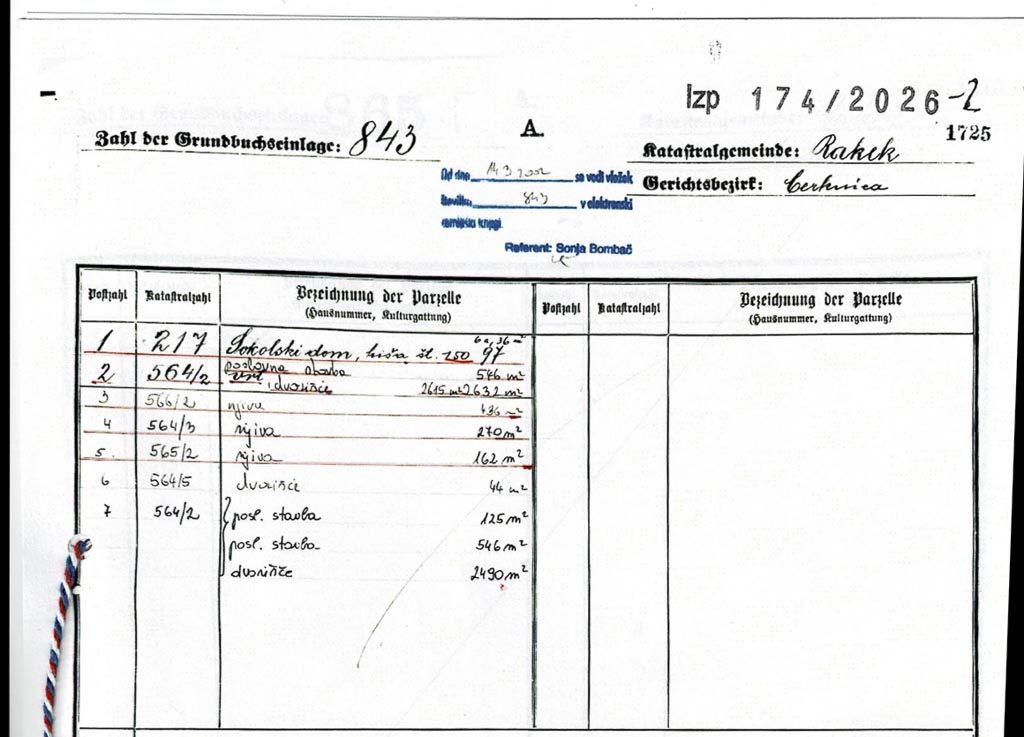 Izp 174/2026-2
1725
Zahl der Grundbuchseinlage: 843
A.
Katastralgemeinde: Rakek
Gerichtsbezirk: Cerknica
Od dne 14.3.2002 se vodi vložek
številka 843 v elektronski
zemljiška knjigi.
Referent: Sonja Bombač
Postzahl Katastralzahl Bezeichnung der Parzelle (Hausnummer, Kulturgattung) Postzahl Katastralzahl Bezeichnung der Parzelle (Hausnummer, Kulturgattung)
6a, 36 m²
1 217 Sokolski dom, hiša št. 150 97
2 564/2 poslovna stavba 546 m²
vrt, dvorišče 2615 m² 2632 m²
3 566/2 njiva 436 m²
4 564/3 njiva 270 m²
5. 565/2 njiva 162 m²
6 564/5 dvorišče 44 m²
7 564/2 posl. stavba 125 m²
posl. stavba 546 m²
dvorišče 2490 m²